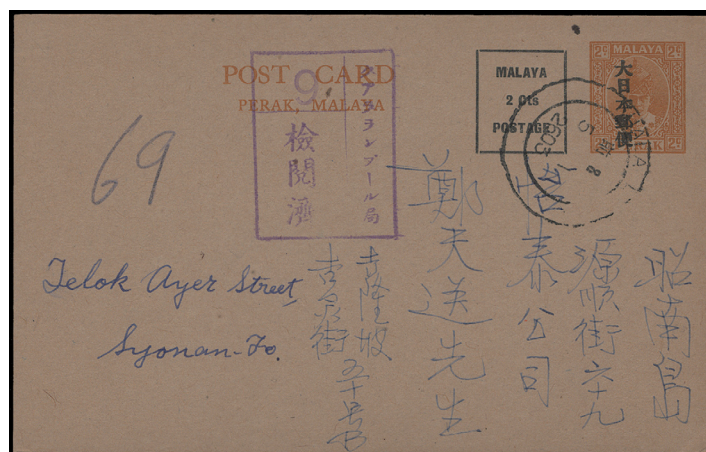 POST CARD
PERAK, MALAYA
9
クアラランプール局
檢閲濟
MALAYA
2 Cts
POSTAGE
2c MALAYA 2c
大日本郵便
2c
2603
69
Telok Ayer Street,
Syonan-To.
昭南島
源順街六十九
泰公司
鄭天送先生
吉隆坡
五十号